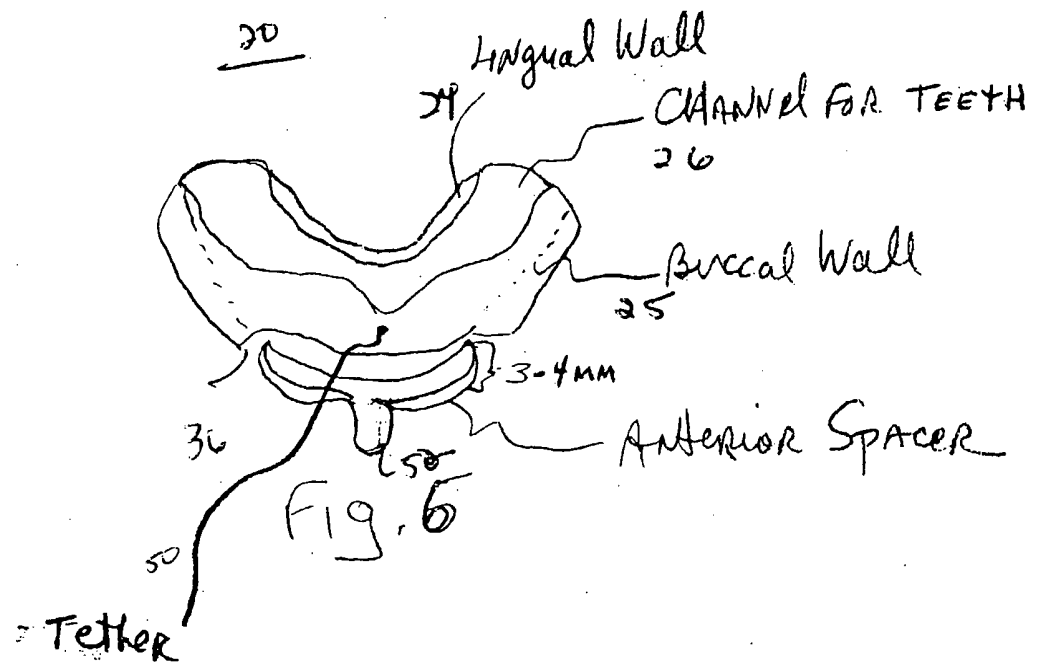 20
Lingual Wall
24
CHANNEL FOR TEETH
26
Buccal Wall
25
3-4MM
36
Anterior Spacer
50
Fig. 6
50
Tether